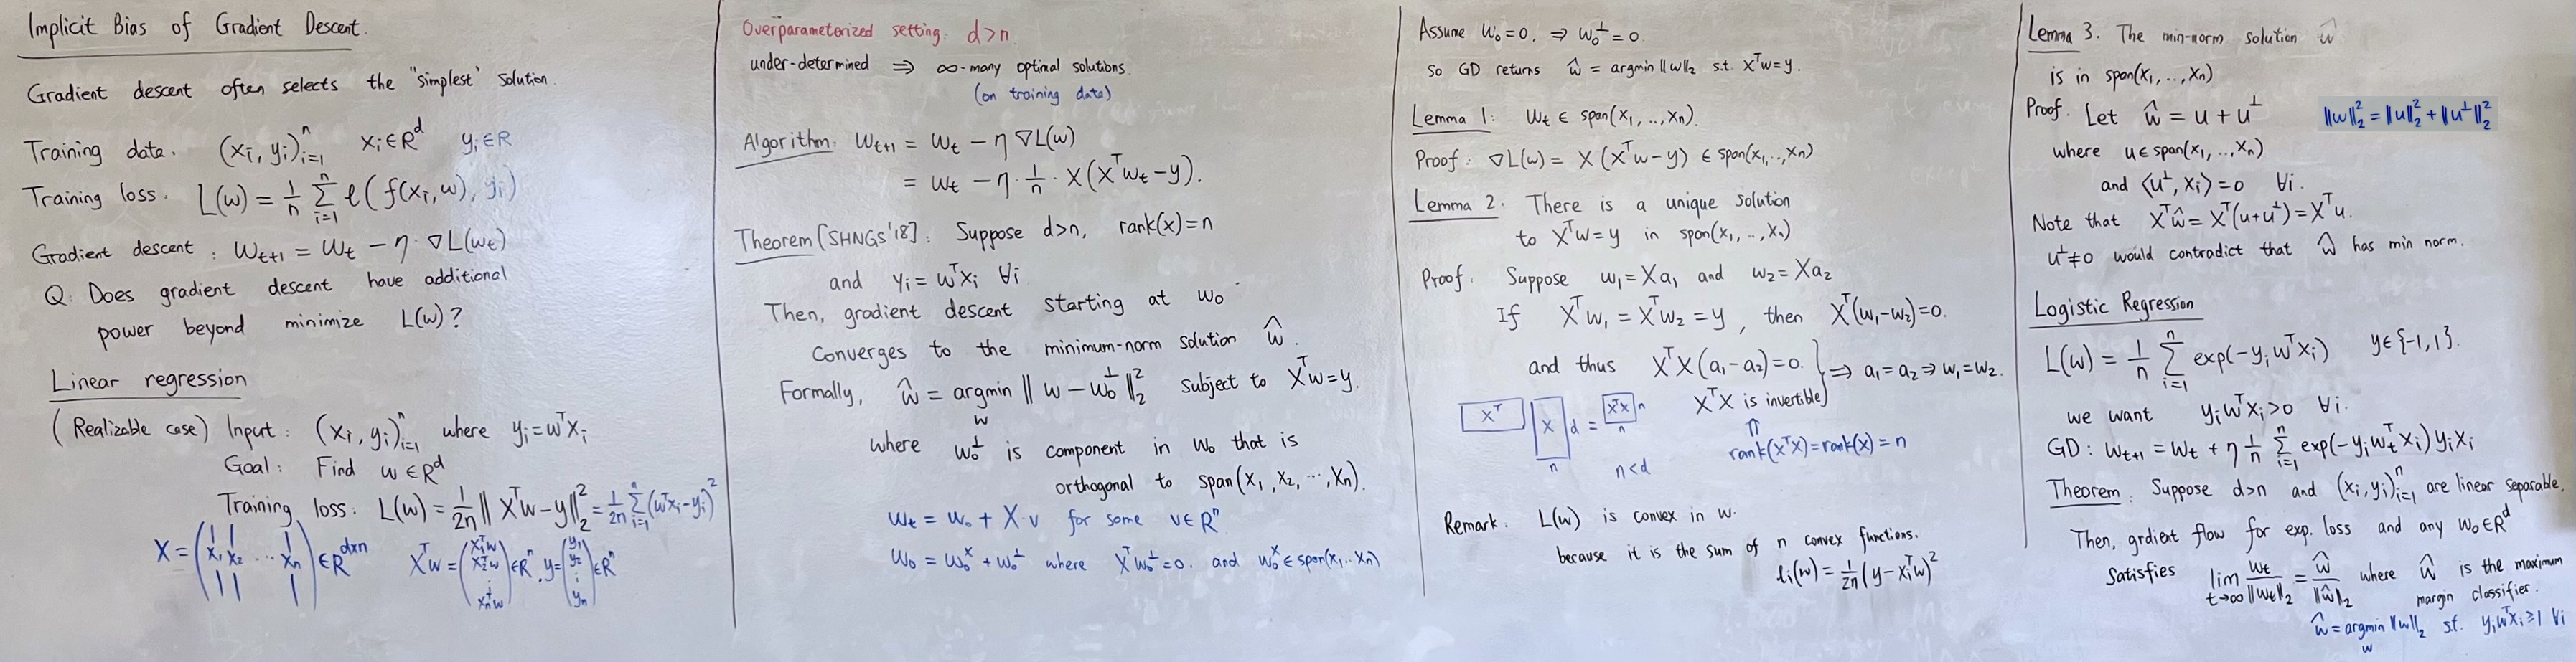 Implicit Bias of Gradient Descent.
Gradient descent often selects the "simplest" solution.
Training data. (xᵢ, yᵢ)ⁿᵢ₌₁ xᵢ∈Rᵈ yᵢ∈R
Training loss. L(w) = 1/n Σⁿᵢ₌₁ ℓ(f(xᵢ, w), yᵢ)
Gradient descent : wₜ₊₁ = wₜ − η · ∇L(wₜ)
Q: Does gradient descent have additional
power beyond minimize L(w)?
Linear regression
(Realizable case) Input : (xᵢ, yᵢ)ⁿᵢ₌₁ where yᵢ = wᵀxᵢ
Goal : Find w∈Rᵈ
Training loss: L(w) = 1/2n ‖Xᵀw − y‖₂² = 1/2n Σⁿᵢ₌₁ (wᵀxᵢ − yᵢ)²
X = (x₁ x₂ ... xₙ) ∈ Rᵈˣⁿ Xᵀw = (x₁ᵀw x₂ᵀw ⋮ xₙᵀw) ∈ Rⁿ, y = (y₁ y₂ ⋮ yₙ) ∈ Rⁿ
Overparameterized setting: d>n.
under-determined ⇒ ∞-many optimal solutions.
(on training data)
Algorithm: wₜ₊₁ = wₜ − η ∇L(w)
= wₜ − η · 1/n · X(Xᵀwₜ − y).
Theorem [SHNGS'18]: Suppose d>n, rank(x) = n
and yᵢ = wᵀxᵢ ∀i
Then, gradient descent starting at w₀
converges to the minimum-norm solution ŵ.
Formally, ŵ = argmin_w ‖w − w₀^⊥‖₂² subject to Xᵀw = y.
where w₀^⊥ is component in w₀ that is
orthogonal to span(x₁, x₂, ..., xₙ).
wₜ = w₀ + X·v for some v∈Rⁿ
w₀ = w₀ˣ + w₀^⊥ where Xᵀw₀^⊥ = 0. and w₀ˣ ∈ span(x₁..xₙ)
Assume w₀ = 0, ⇒ w₀^⊥ = 0
So GD returns ŵ = argmin ‖w‖₂ s.t. Xᵀw = y.
Lemma 1: wₜ ∈ span(x₁, .., xₙ).
Proof: ∇L(w) = X(Xᵀw − y) ∈ span(x₁,..,xₙ)
Lemma 2. There is a unique solution
to Xᵀw = y in span(x₁, .., xₙ)
Proof. Suppose w₁ = Xa₁ and w₂ = Xa₂
If Xᵀw₁ = Xᵀw₂ = y, then Xᵀ(w₁ − w₂) = 0.
and thus XᵀX(a₁ − a₂) = 0. } ⇒ a₁ = a₂ ⇒ w₁ = w₂.
XᵀX is invertible
⇑
rank(XᵀX) = rank(X) = n
Xᵀ X d = XᵀX n
n n
n<d
Remark. L(w) is convex in w.
because it is the sum of n convex functions.
ℓᵢ(w) = 1/2n (y − xᵢᵀw)²
Lemma 3. The min-norm solution ŵ
is in span(x₁, .., xₙ)
Proof. Let ŵ = u + u^⊥
‖w‖₂² = ‖u‖₂² + ‖u^⊥‖₂²
where u∈span(x₁, .., xₙ)
and ⟨u^⊥, xᵢ⟩ = 0 ∀i.
Note that Xᵀŵ = Xᵀ(u + u^⊥) = Xᵀu.
u^⊥ ≠ 0 would contradict that ŵ has min norm.
Logistic Regression
L(w) = 1/n Σⁿᵢ₌₁ exp(−yᵢwᵀxᵢ) y∈{−1, 1}.
we want yᵢwᵀxᵢ > 0 ∀i.
GD : wₜ₊₁ = wₜ + η 1/n Σⁿᵢ₌₁ exp(−yᵢwₜᵀxᵢ) yᵢxᵢ
Theorem: Suppose d>n and (xᵢ, yᵢ)ⁿᵢ₌₁ are linear separable,
Then, grdient flow for exp. loss and any w₀∈Rᵈ
Satisfies lim_{t→∞} wₜ/‖wₜ‖₂ = ŵ/‖ŵ‖₂ where ŵ is the maximum
margin classifier.
ŵ = argmin_w ‖w‖₂ s.t. yᵢwᵀxᵢ ≥ 1 ∀i